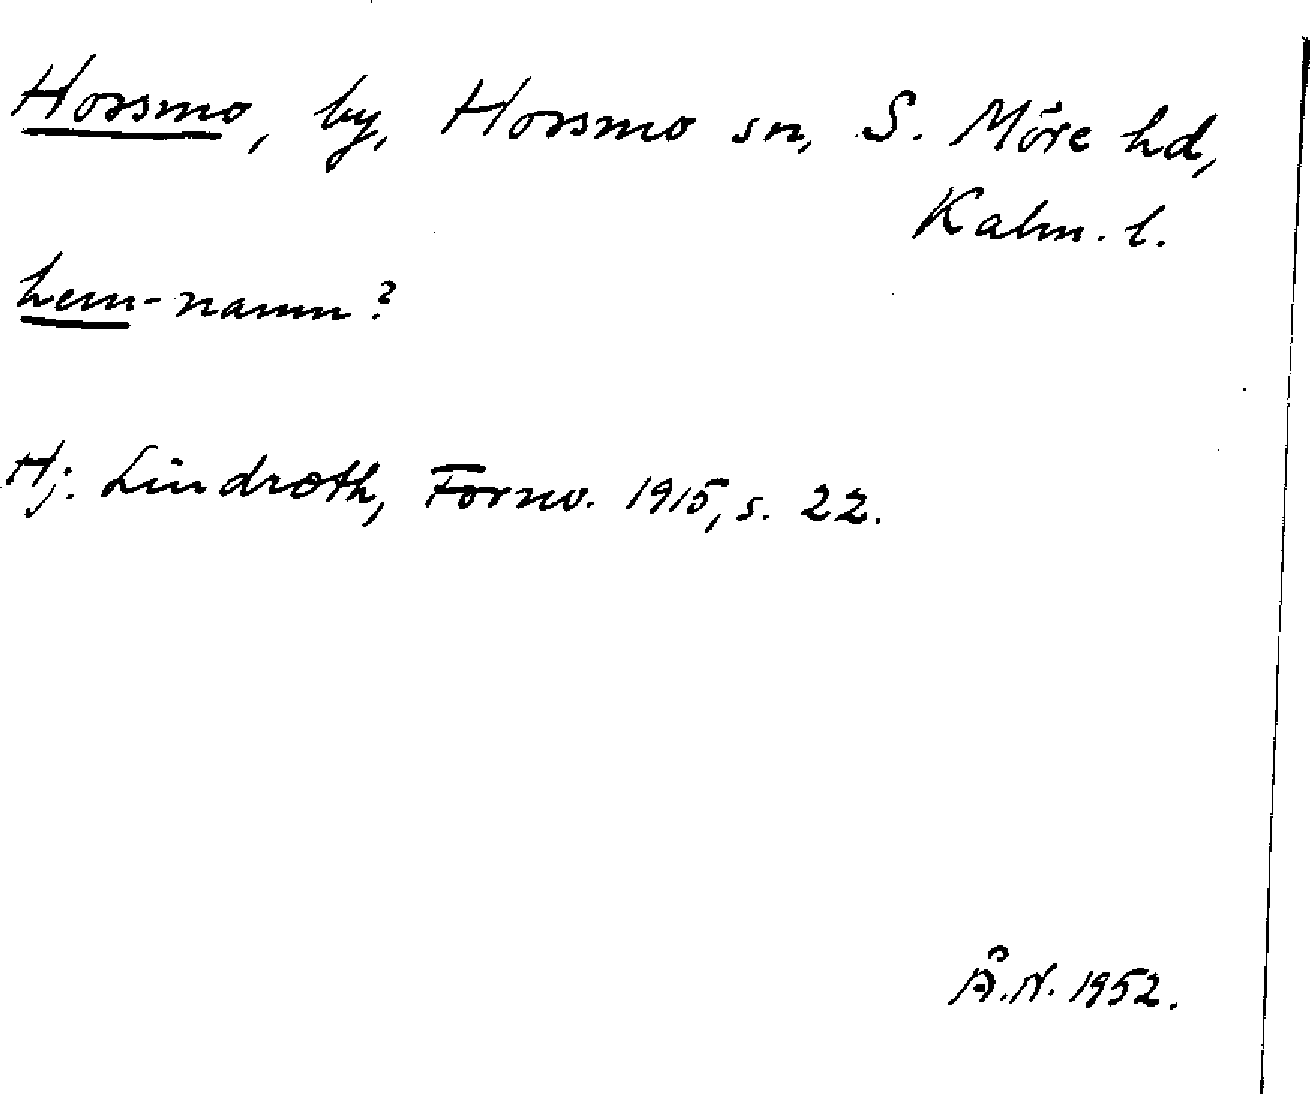 Hossmo, by, Hossmo sn, S. Möre hd,
Kalm. l.
hem-namn?
Hj. Lindroth, Fornv. 1915, s. 22.
Å.N. 1952.